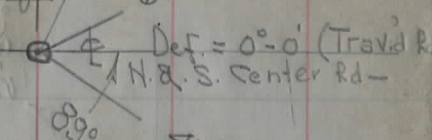 ℄ Def. = 0°-0' (Trav'd R
N. & S. Center Rd-